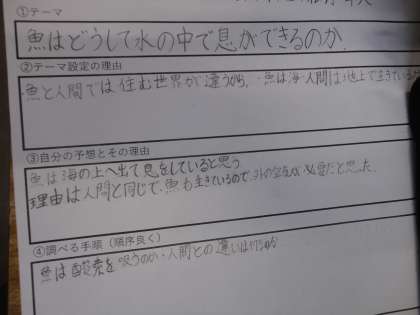 ①テーマ
魚はどうして水の中で息ができるのか.
②テーマ設定の理由
魚と人間では住む世界が違うから。・魚は海・人間は地上で生きている
③自分の予想とその理由
魚は海の上へ出て息をしていると思う
理由は人間と同じで、魚も生きているので、外の空気が必要だと思った.
④調べる手順（順序良く）
魚は酸素を吸うのか・人間との違いは何か